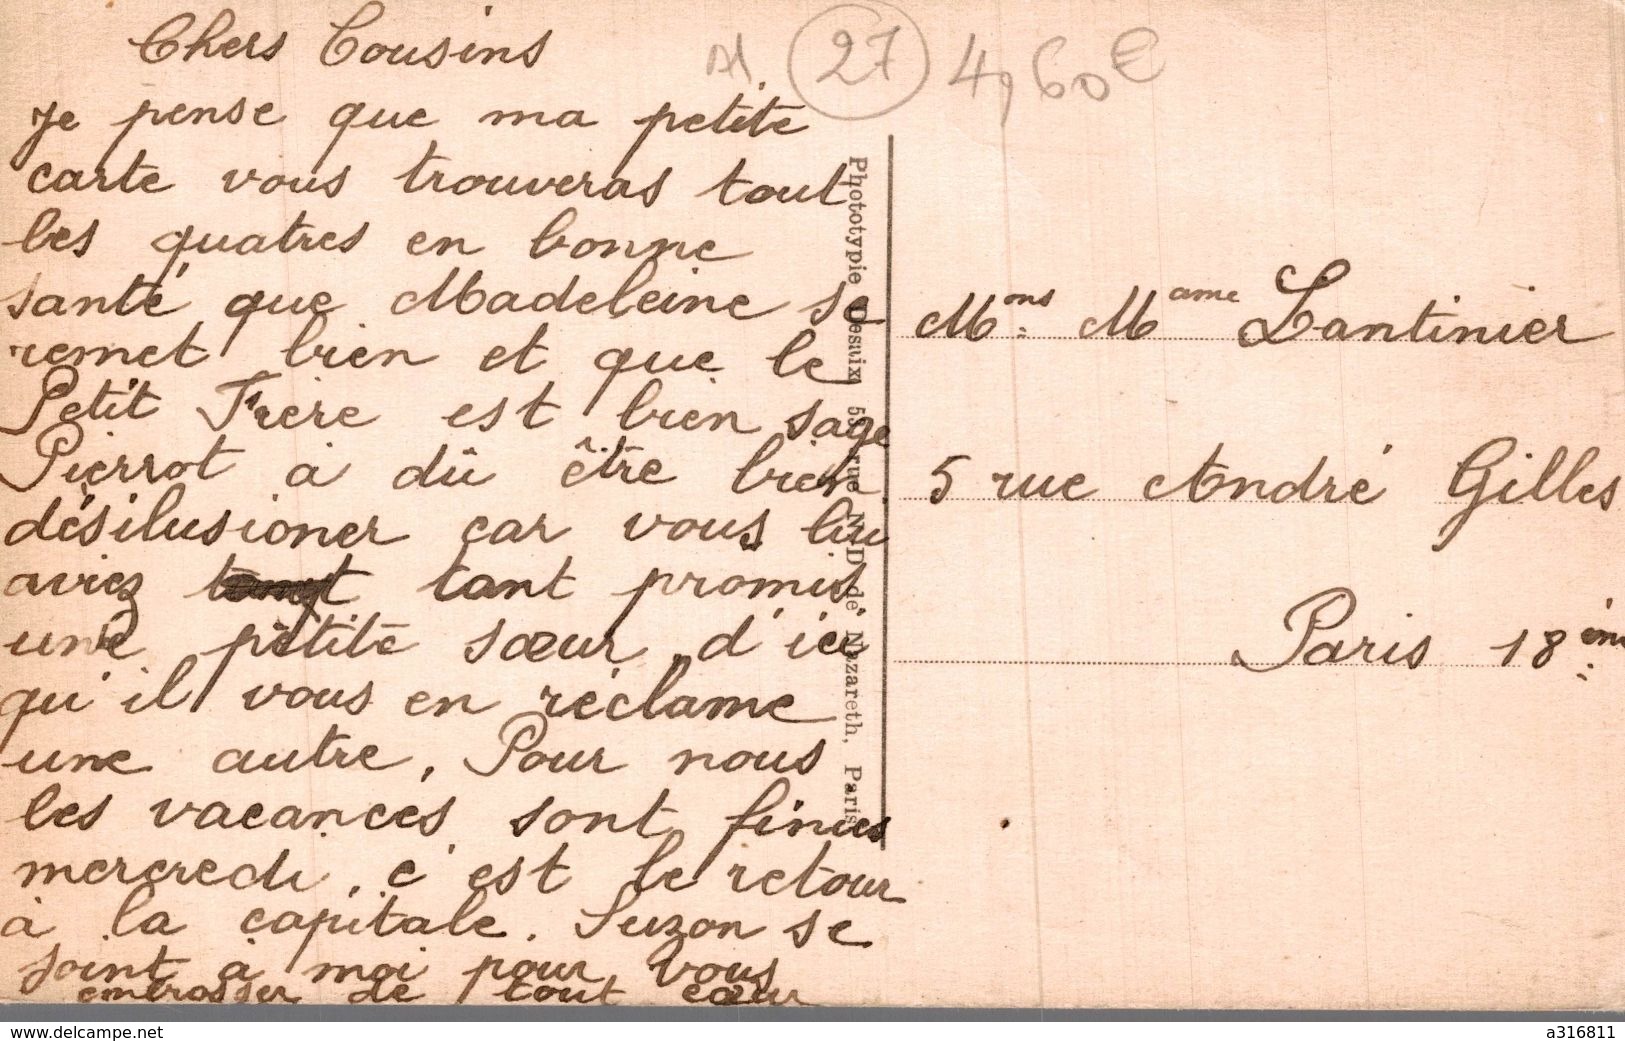 Chers Cousins
Je pense que ma petite
carte vous trouveras tout
les quatres en bonne
santé que Madeleine se
remet bien et que le
Petit Frère est bien sage
Pierrot a dû être bien
désilusioner car vous lui
aviez tant promis
une petite sœur, d'ici
qu'il vous en réclame
une autre. Pour nous
les vacances sont finies
mercredi, c'est le retour
à la capitale. Suzon se
joint à moi pour vous
embrasser de tout cœur
27 4,60€
Phototypie Desaix rue N.-D. de Nazareth, Paris
Mons: Mame Lantinier
5 rue André Gilles
Paris 18ème
www.delcampe.net
a316811